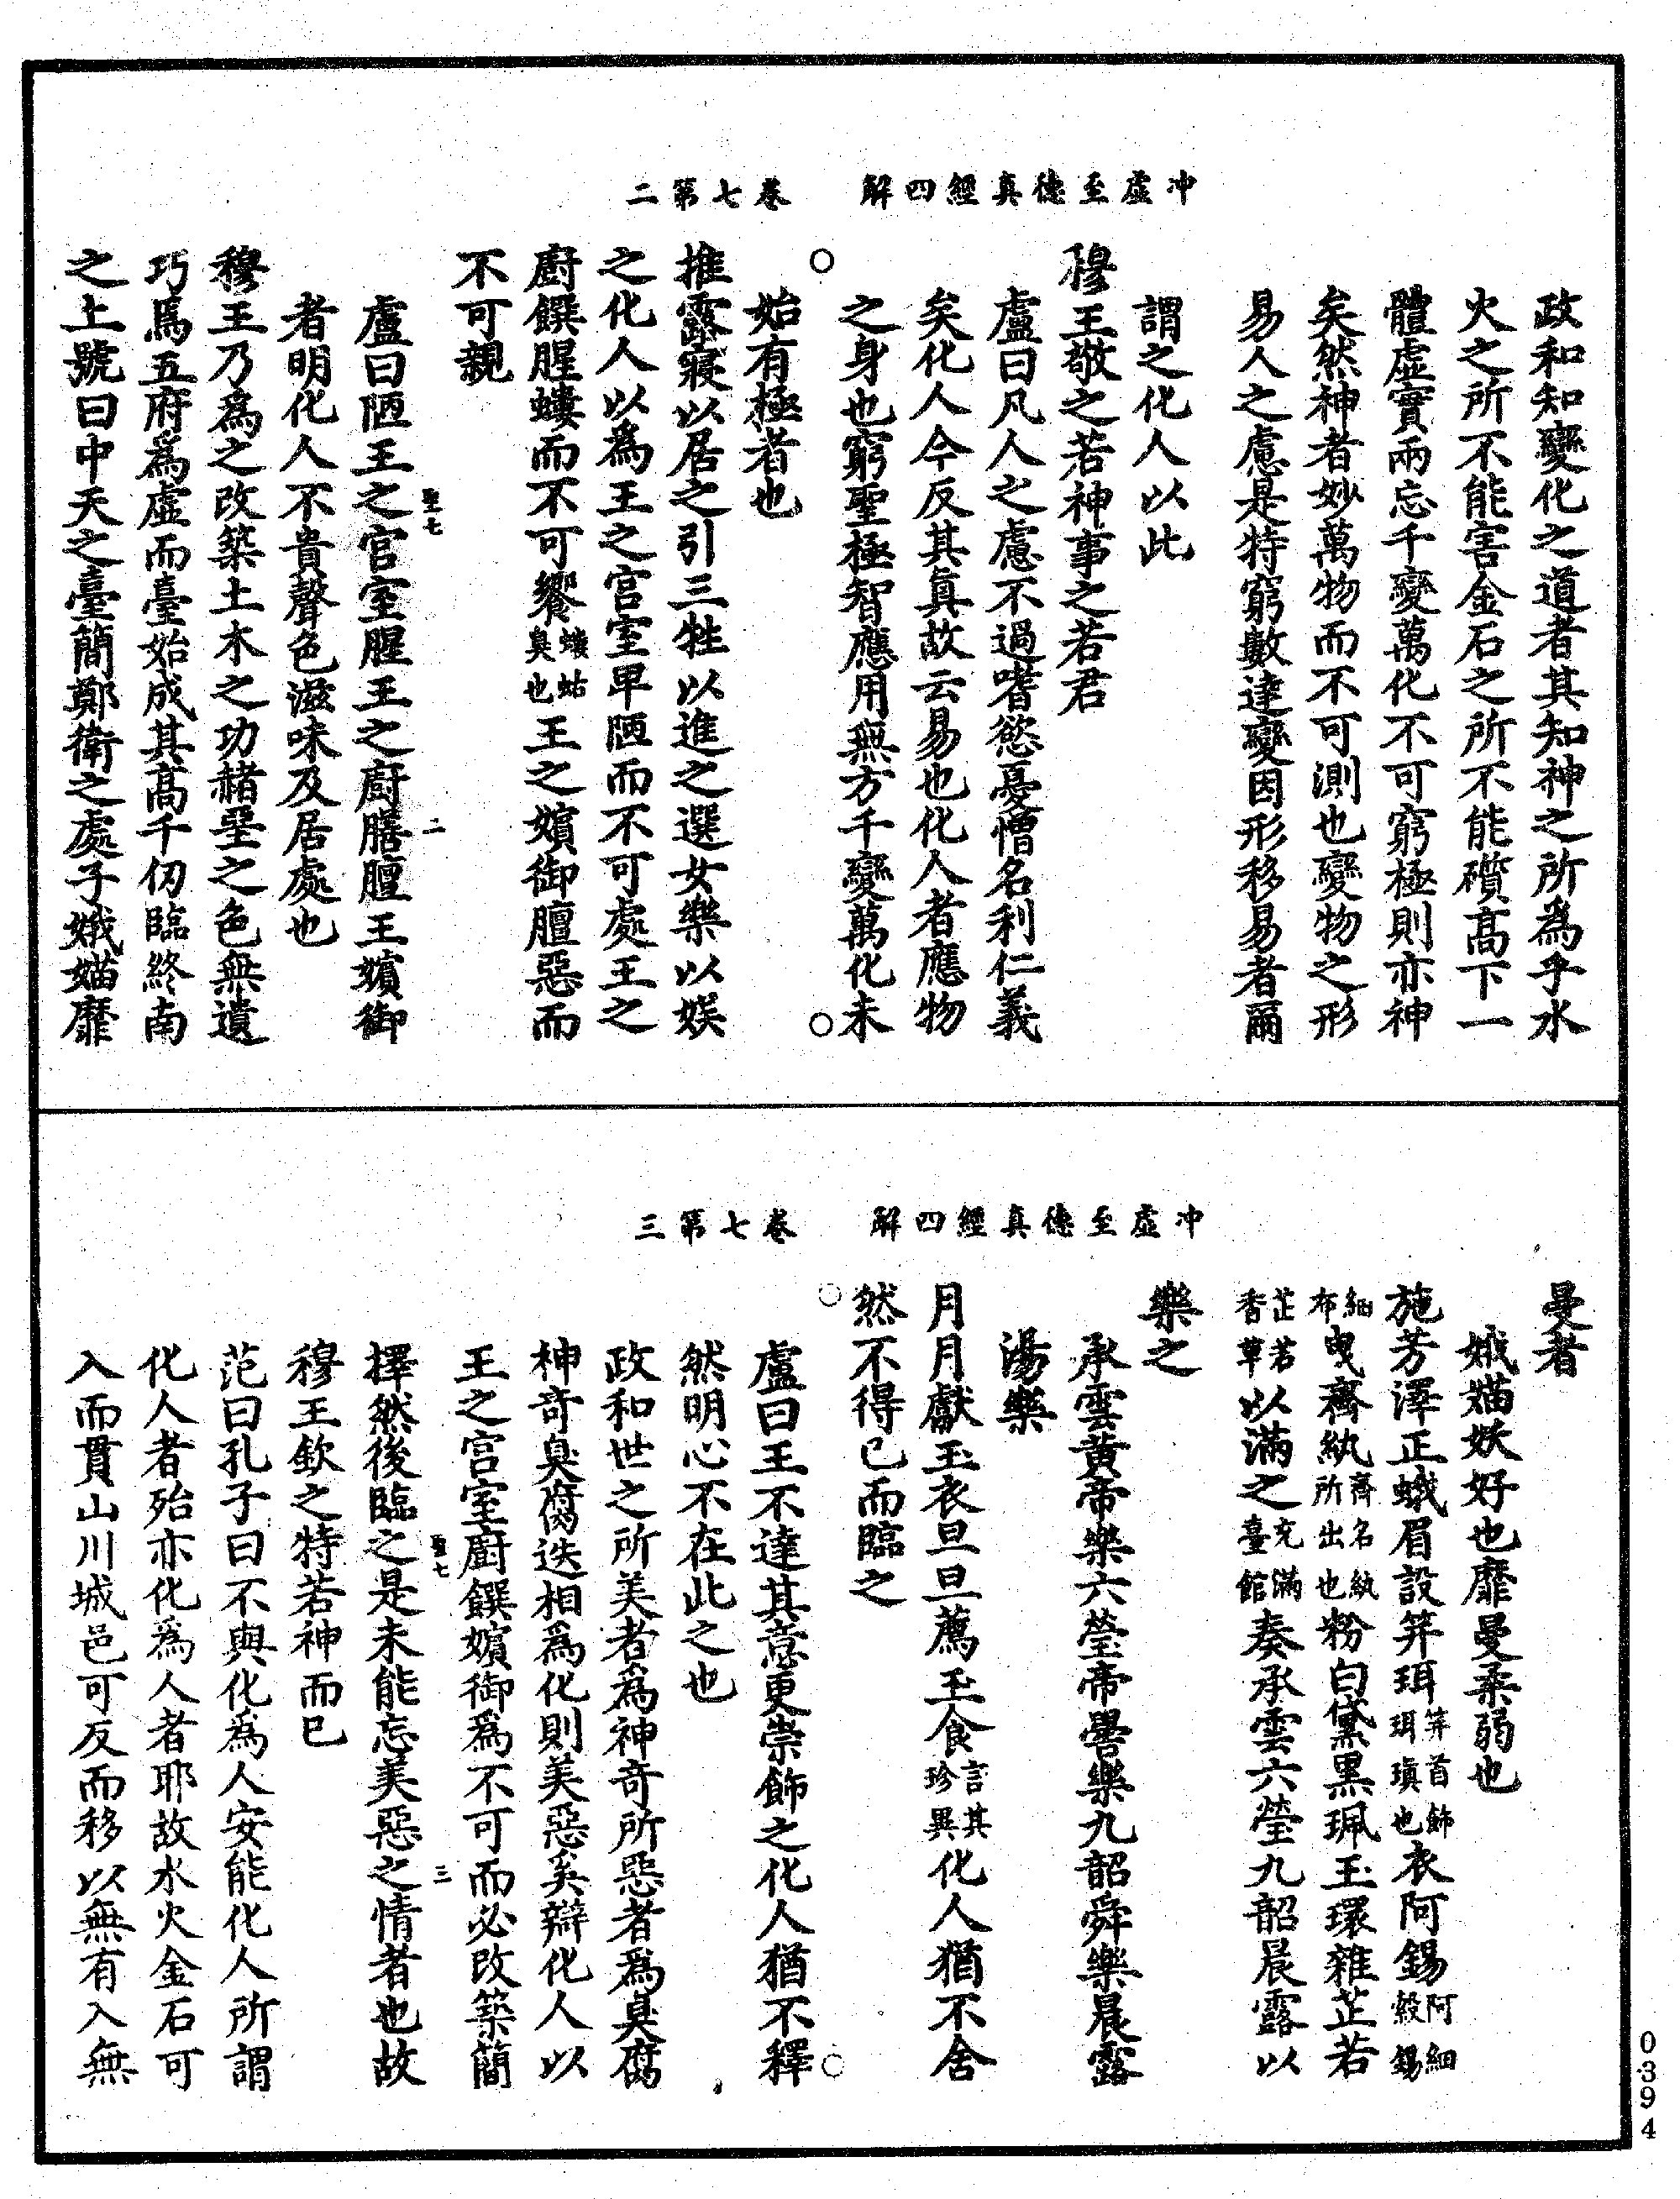 冲虛至德真經四解　卷七第二
政和知變化之道者其知神之所為乎水
火之所不能害金石之所不能礩高下一
體虛實兩忘千變萬化不可窮極則亦神
矣然神者妙萬物而不可測也變物之形
易人之慮是特窮數達變因形移易者爾
謂之化人以此
穆王敬之若神事之若君
盧曰凡人之慮不過嗜慾憂憎名利仁義
矣化人今反其真故云易也化人者應物
之身也窮聖極智應用無方千變萬化未
始有極者也
推露寢以居之引三牲以進之選女樂以娱
之化人以為王之宫室卑陋而不可處王之
廚饌腥螻而不可饗螻蛄臭也王之嬪御膻惡而
不可親
盧曰陋王之宫室腥王之廚膳膻王嬪御
者明化人不貴聲色滋味及居處也
穆王乃為之改築土木之功赭堊之色無遺
巧焉五府為虛而臺始成其高千仞臨終南
之上號曰中天之臺簡鄭衛之處子娥媌靡
聖七
二
冲虛至德真經四解　卷七第三
曼者
娥媌妖好也靡曼柔弱也
施芳澤正蛾眉設笄珥笄首飾珥瑱也衣阿錫阿細縠錫細
布曳齊紈齊名紈所出也粉白黛黑珮玉環雜芷若
芷若香草以滿之充滿臺館奏承雲六瑩九韶晨露以
樂之
承雲黄帝樂六瑩帝嚳樂九韶舜樂晨露
湯樂
月月獻玉衣旦旦薦玉食言其珍異化人猶不舍
然不得已而臨之
盧曰王不達其意更崇飾之化人猶不釋
然明心不在此之也
政和世之所美者為神奇所惡者為臭腐
神奇臭腐迭相為化則美惡奚辯化人以
王之宫室廚饌嬪御為不可而必改築簡
擇然後臨之是未能忘美惡之情者也故
穆王欽之特若神而已
范曰孔子曰不與化為人安能化人所謂
化人者殆亦化為人者耶故水火金石可
入而貫山川城邑可反而移以無有入無
聖七
三
0394